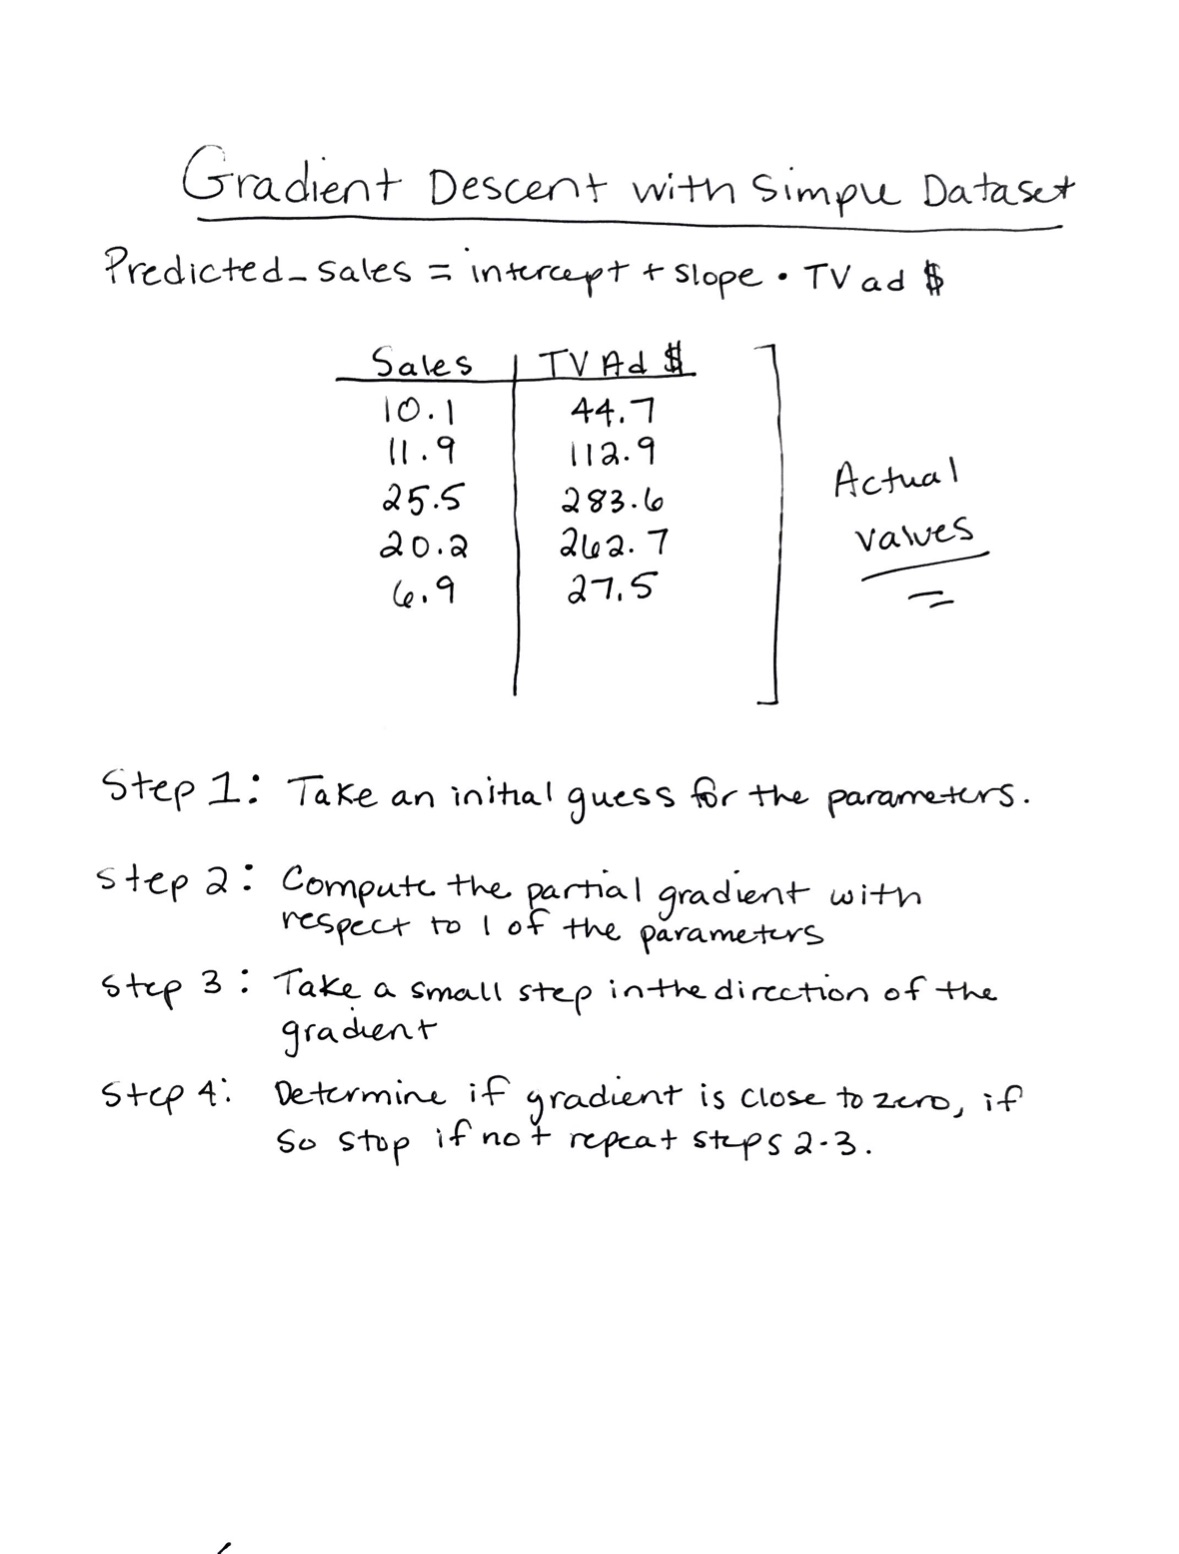 Gradient Descent with Simple Dataset
Predicted_sales = intercept + slope • TV ad $
Sales | TV Ad $
10.1 | 44.7
11.9 | 112.9
25.5 | 283.6
20.2 | 262.7
6.9 | 27.5
Actual
values
Step 1: Take an initial guess for the parameters.
Step 2: Compute the partial gradient with
respect to 1 of the parameters
Step 3: Take a small step in the direction of the
gradient
Step 4: Determine if gradient is close to zero, if
so stop if not repeat steps 2-3.